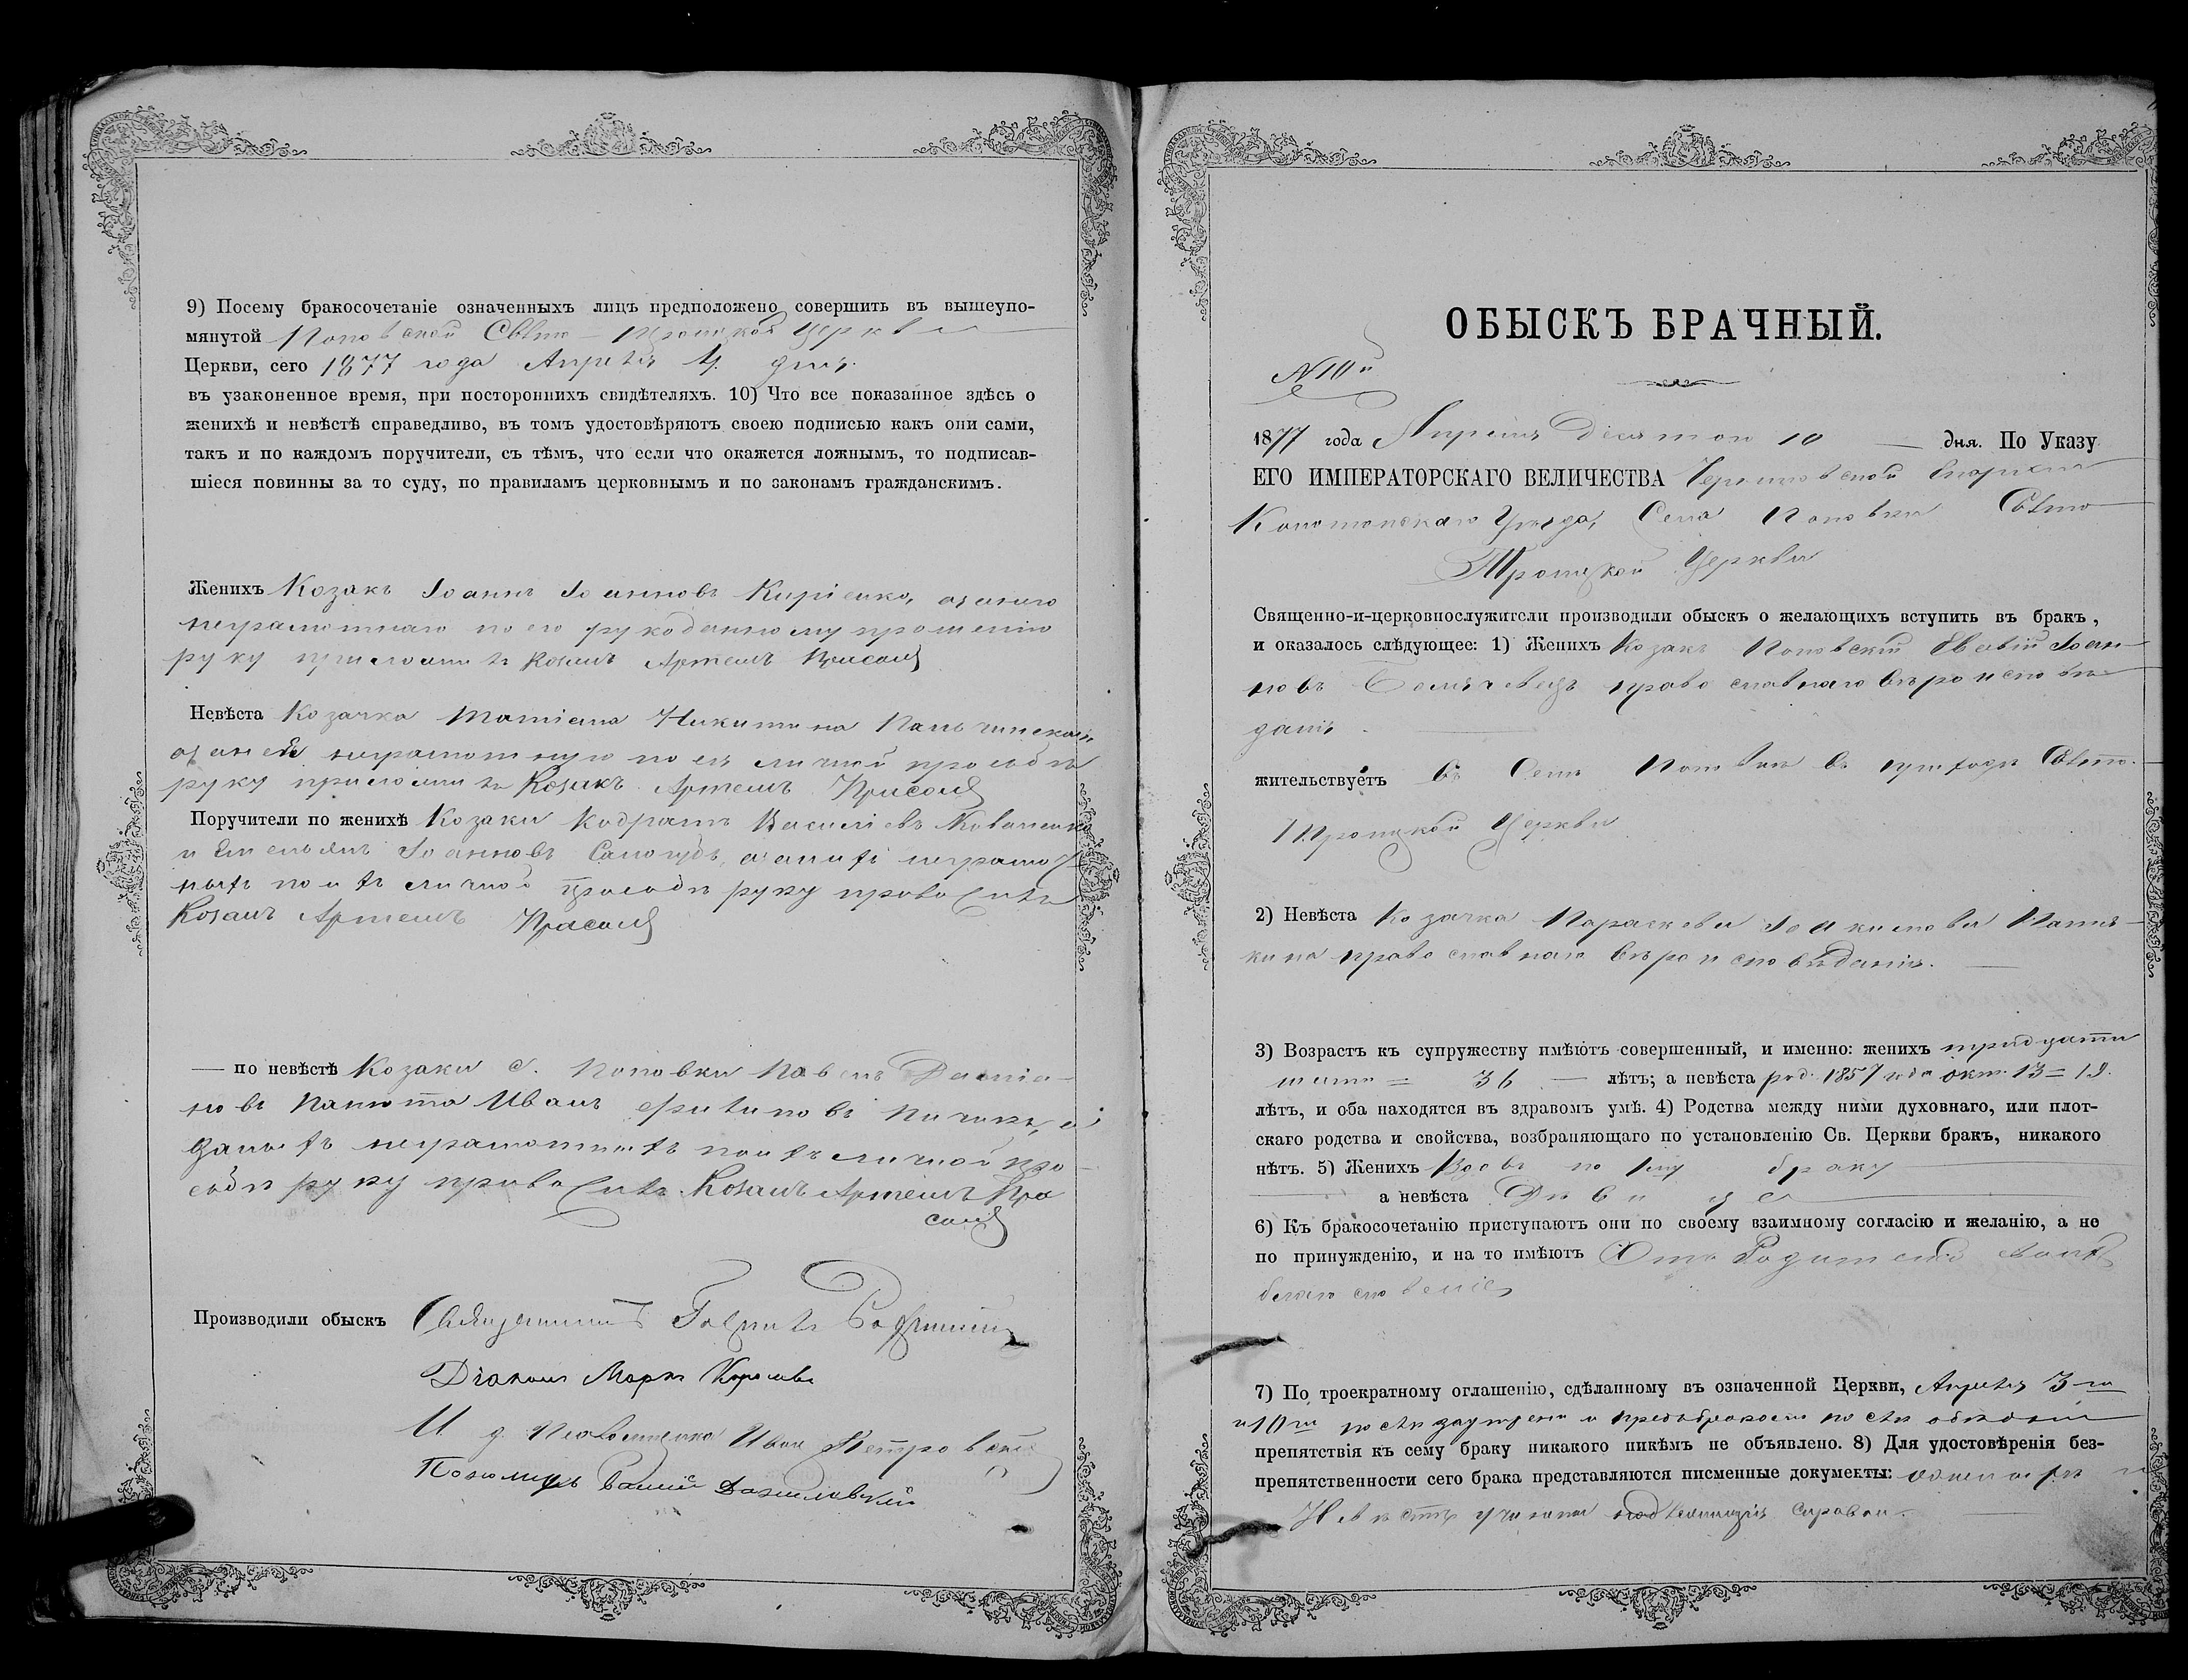 9) Посему бракосочетаніе означенныхъ лицъ предположено совершить въ вышеупо-
мянутой Поповской Свято-Троицкой Церкви
Церкви, сего 1877 года Апрѣля 4. дня.
въ узаконенное время, при постороннихъ свидѣтеляхъ. 10) Что все показанное здѣсь о
женихѣ и невѣстѣ справедливо, въ томъ удостовѣряютъ своею подписью какъ они сами,
такъ и по каждомъ поручители, съ тѣмъ, что если что окажется ложнымъ, то подписав-
шіеся повинны за то суду, по правиламъ церковнымъ и по законамъ гражданскимъ.
Женихъ Козакъ Іоаннъ Іоанновъ Киріенко, а за него
неграмотнаго по его рукоданному прошенію
руку приложилъ Козакъ Артемъ Прасолъ
Невѣста Козачка Татіана Никитина
а за неё неграмотную по ея личной прозьбѣ
руку приложилъ Козакъ Артемъ Прасолъ
Поручители по женихѣ Козаки Кодратъ Василіевъ Коваленко
и Емельянъ Іоанновъ а за нихъ неграмот-
ныхъ по ихъ личной прозьбѣ руку приложилъ
Козакъ Артемъ Прасолъ
— по невѣстѣ Козаки с. Поповки Павелъ Даміа-
новъ Панюта Иванъ а
за ныхъ неграмотныхъ по ихъ личной про-
зьбѣ руку приложилъ Козакъ Артемъ Пра
солъ
Производили обыскъ Священникъ Гавріилъ
Діаконъ Маркъ
И. д. Псаломщика Иванъ Петровскій
Пономарь
ОБЫСКЪ БРАЧНЫЙ.
№ 10й
1877 года Апрѣля десятого 10 — дня. По Указу
ЕГО ИМПЕРАТОРСКАГО ВЕЛИЧЕСТВА Черниговской Епархіи
Конотопскаго Уѣзда, Села Поповки Свято
Троицкой Церкви
Священно-и-церковнослужители производили обыскъ о желающихъ вступить въ бракъ,
и оказалось слѣдующее: 1) Женихъ Козакъ Поповскій Іоан-
новъ православнаго вѣроисповѣ-
данія.
жительствуетъ въ Селѣ Поповкѣ въ приходѣ Свято-
Троицкой Церкви
2) Невѣста Козачка Параскева Іоакимова
кина православнаго вѣроисповѣданія.
3) Возрастъ къ супружеству имѣютъ совершенный, и именно: женихъ тридцати
шести = 36 — лѣтъ; а невѣста род. 1857 года окт. 13 = 19.
лѣтъ, и оба находятся въ здравомъ умѣ. 4) Родства между ними духовнаго, или плот-
скаго родства и свойства, возбраняющаго по установленію Св. Церкви бракъ, никакого
нѣтъ. 5) Женихъ Вдовъ по 1му браку
а невѣста Дѣвица
6) Къ бракосочетанію приступаютъ они по своему взаимному согласію и желанію, а не
по принужденію, и на то имѣютъ Отъ Родителей своихъ
благословеніе,
7) По троекратному оглашенію, сдѣланному въ означенной Церкви, Апрѣля 3-го
и 10го послѣ
препятствія къ сему браку никакого никѣмъ не объявлено. 8) Для удостовѣренія без-
препятственности сего брака представляются писменные документы: о женихѣ и
Невѣстѣ учинена надлежащая справка.